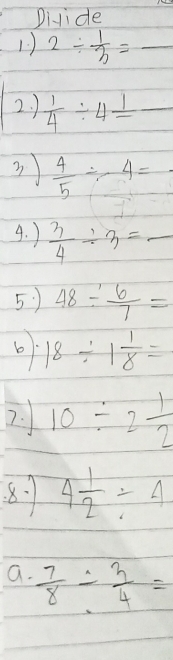 Divide
1.) 2 ÷ 1/3 = —
2.) 1/4 ÷ 4 1 =
3.) 4/5 ÷ 4 =
4.) 3/4 ÷ 3 = —
5.) 48 ÷ 6/7 =
6.) 18 ÷ 1 1/8 =
7.) 10 ÷ 2 1/2
8.) 4 1/2 ÷ 4
9. 7/8 ÷ 3/4 =